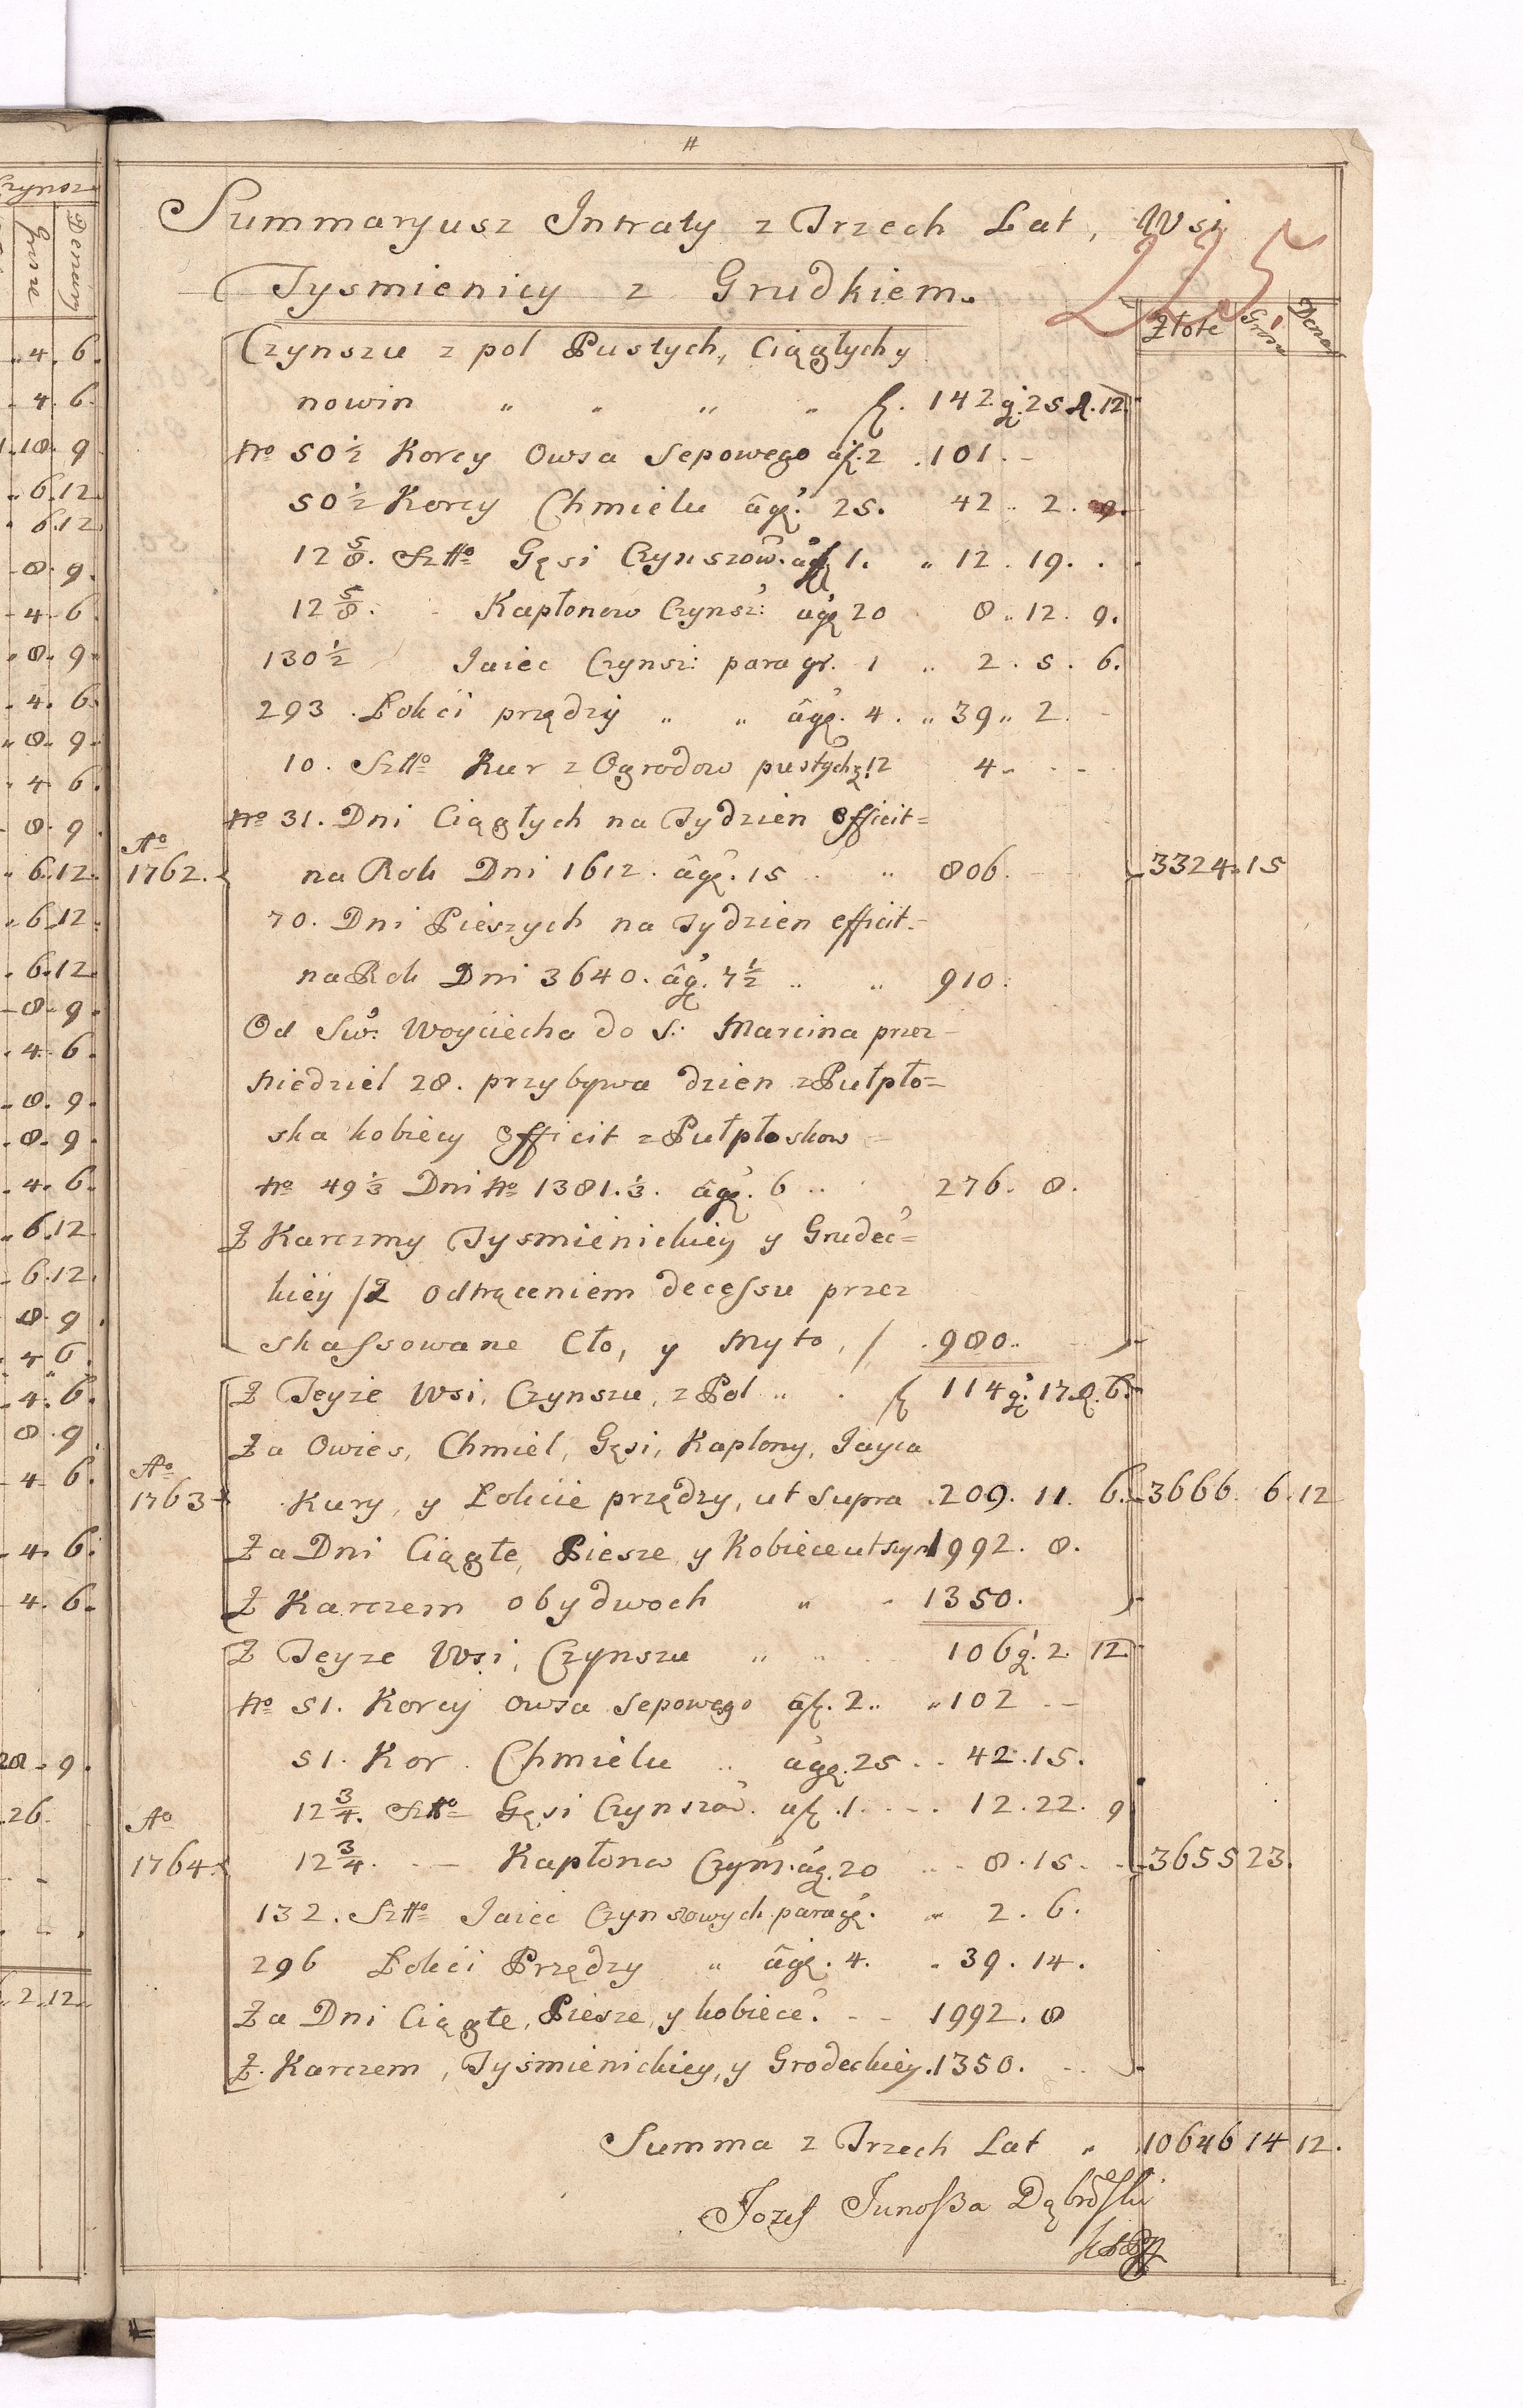 Summaryusz Intraty z Trzech Lat, Wsi
225
Tysmienicy z Grudkiem.
Złote Grosze Denar
Czynszu z pol Pustych, Ciągłych y
nowin " " " " f. 142. g. 25 d. 12.
No 50 1/2 Korcy Owsa Sepowego a f. 2 . 101. -
50 1/2 Korcy Chmielu â gr. 25. 42 .. 2. 9.
12 5/8. Sztk Gęsi Czynszow. a f 1. " 12. 19. .
12 5/8. - Kapłonow Czynsz: a gr 20 8 .. 12. 9.
130 1/2 Jaiec Czynsz: para gr. 1 " 2. 5. 6.
293 . Łokci przędzy " " â gr. 4. " 39 " 2. -
10. Sztk Kur z Ogrodow pustych g. 12 4 - - -
No 31. Dni Ciągłych na Tydzien Efficit=
Ao
1762. na Rok Dni 1612. â gr. 15 .. " 806. 3324. 15
70. Dni Pieszych na Tydzien efficit-
na Rok Dni 3640. â g. 7 1/2 .. " 910.
Od Sw: Woyciecha do S: Marcina przez
Niedziel 28. przybywa dzien z Pułpło=
ska kobiecy Efficit z Pułpłoskow =
No 49 1/3 Dni No 1381. 1/3. â gr. 6 .. 276. 8.
Z Karczmy Tysmienickiey y Grudec=
kiey /z odtrąceniem decessu przez
skassowane Cło, y Myto, / . 980..
Z Teyże Wsi, Czynszu, z Pol " . f 114 g. 17. d. 6.
Za Owies, Chmiel, Gęsi, Kapłony, Jayca
Ao
1763 Kury, y Łokcie przędzy, ut supra . 209. 11. 6. 3666. 6. 12
Za Dni Ciągłe, Piesze y Kobiece ut supr 1992. 8.
Z Karczem obydwoch " - 1350.
Z Teyze Wsi, Czynszu " .. 106 g. 2. 12.
No 51. Korcy owsa Sepowego â f. 2.. " 102 - -
51. Kor. Chmielu .. a gr. 25 . . 42. 15.
12 3/4. Sztk Gęsi Czynszow. a f. 1. - - . 12. 22. 9
Ao
1764. 12 3/4. - Kapłonow Czyns. a g. 20 .. - 8. 15. - 3655 23.
132. Sztk Jaiec Czynszowych para g. " 2. 6.
296 Łokci Przędzy " â gr. 4. " 39. 14.
Za Dni Ciągłe, Piesze, y kobiece. - - 1992. 8
Z. Karczem, Tysmienickiey, y Grodeckiey. 1350. -
Summa z Trzech Lat " 10646 14 12.
Jozef Junosza Dąbrowski